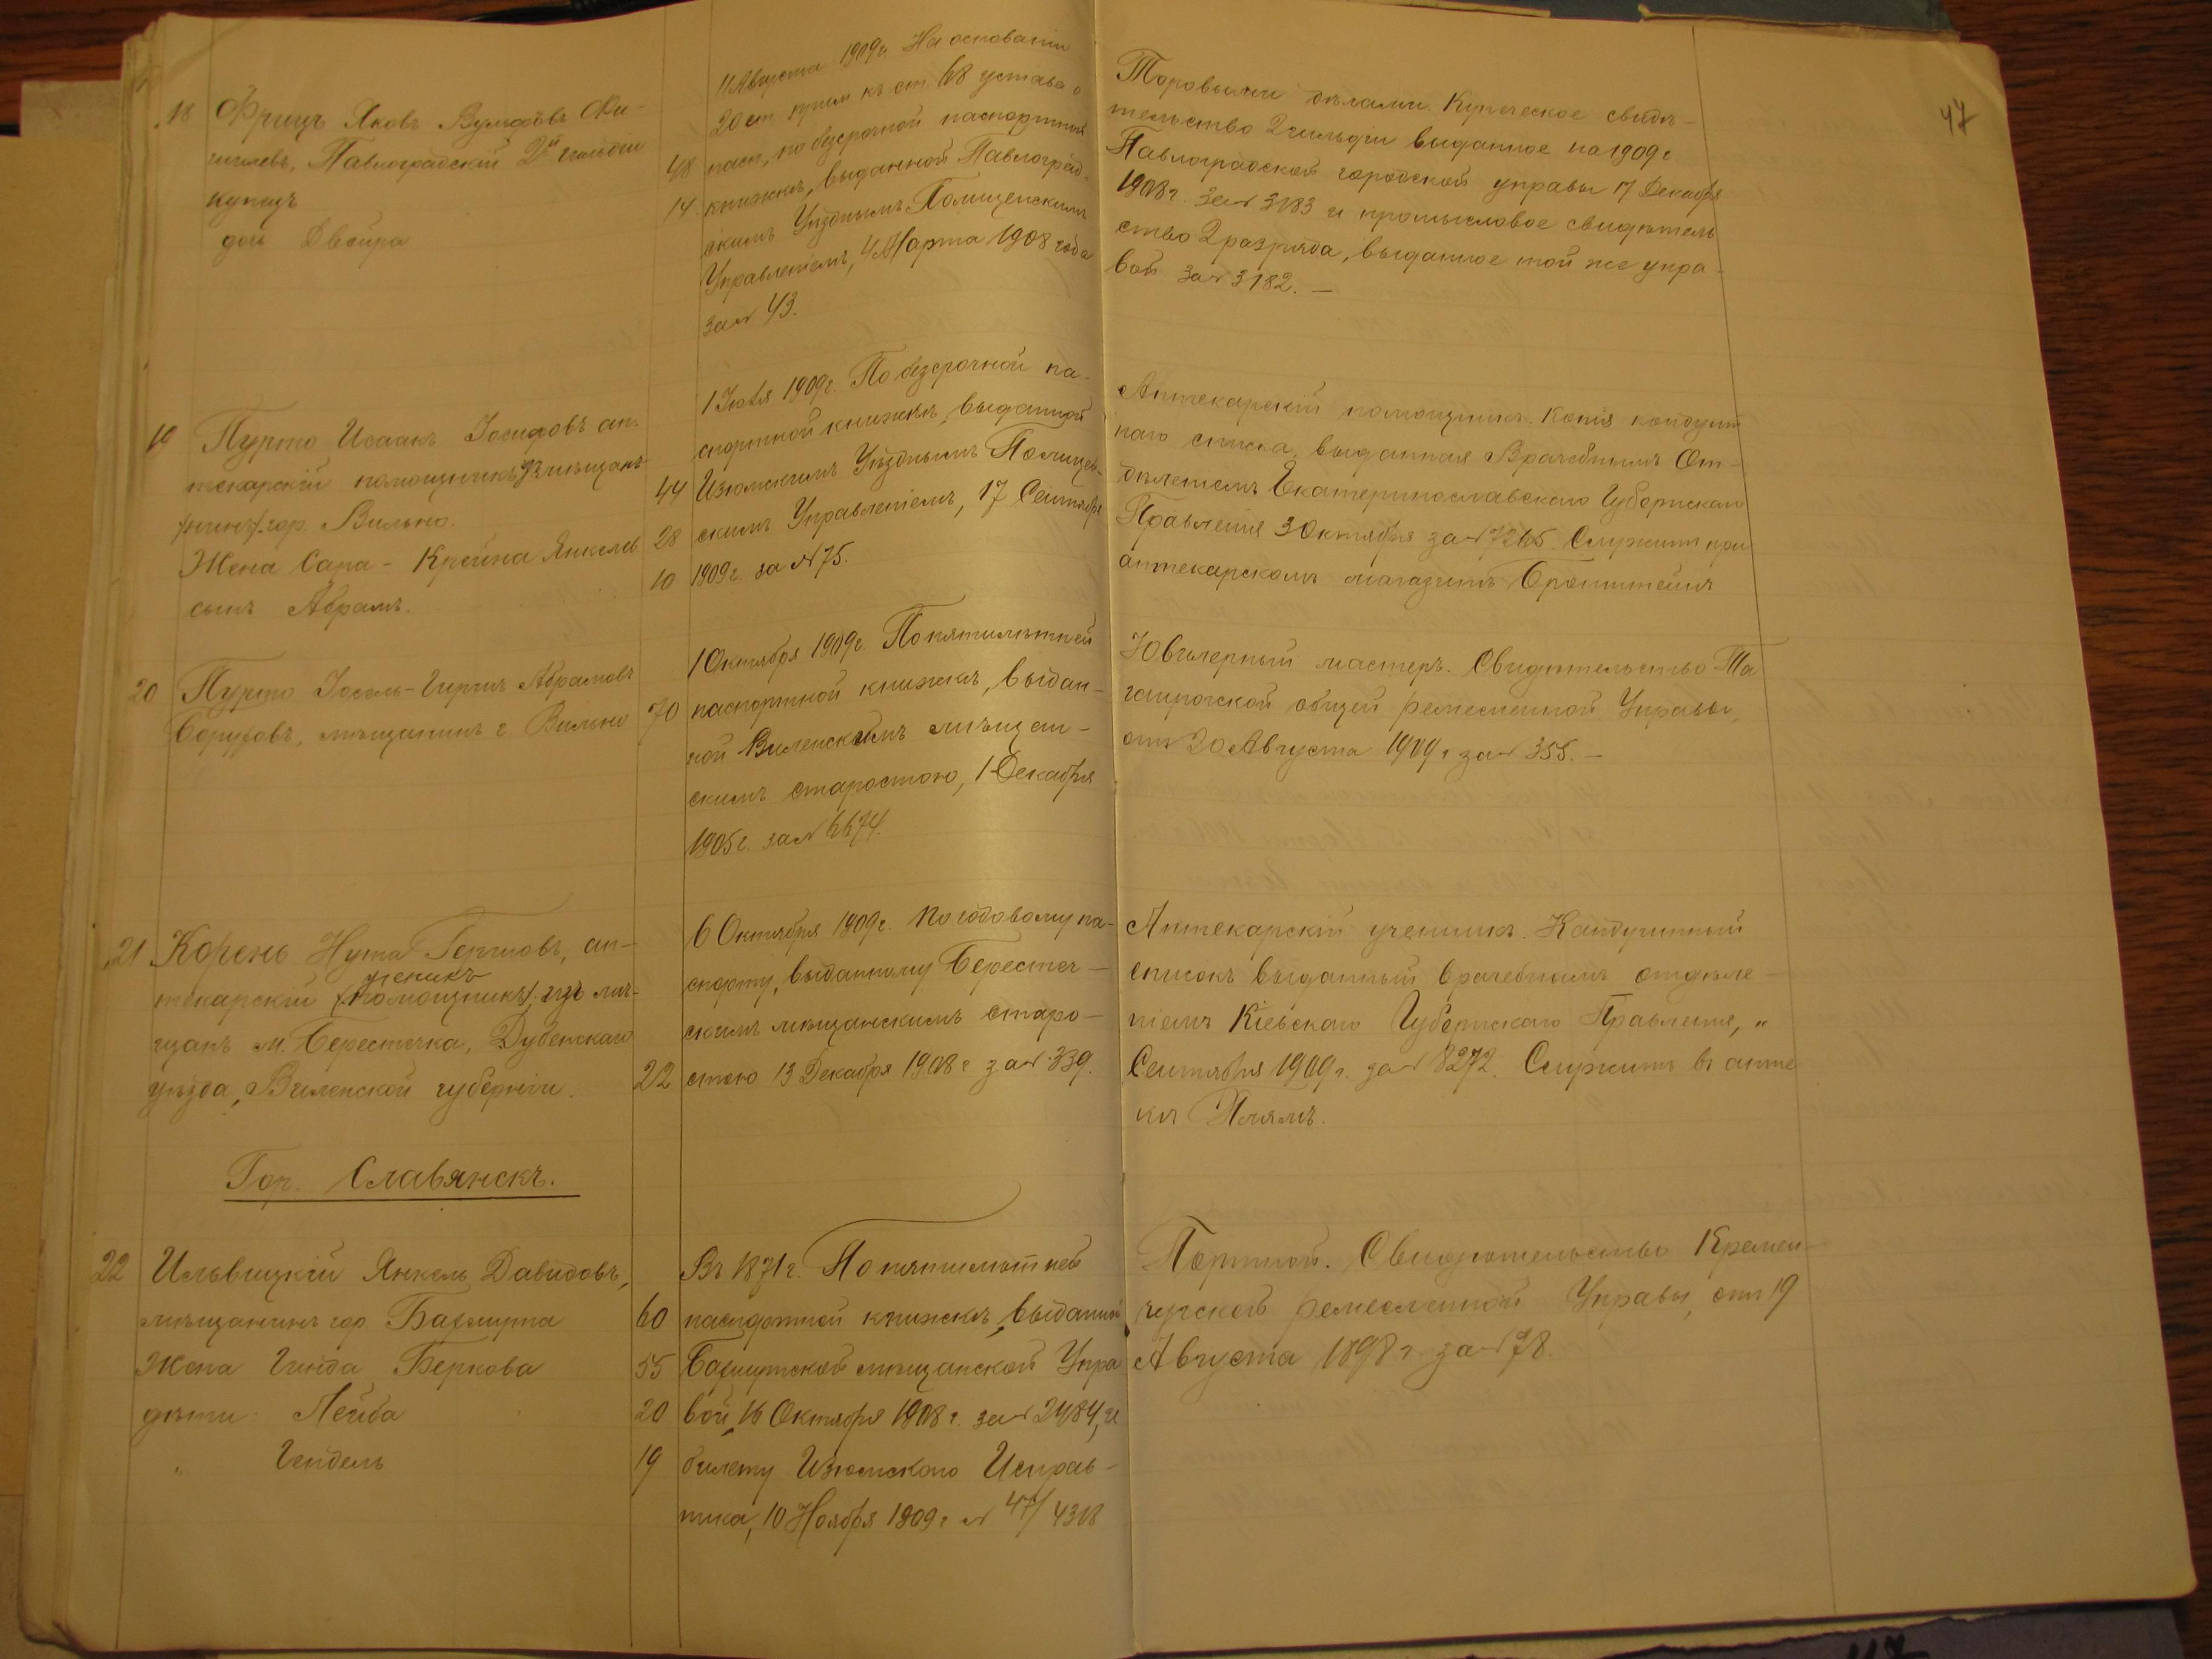 47
18 Фрицъ Яковъ Вульфовъ
Павлоградскій 2й гильдіи
купецъ 48
дочь Двейра 14
11 Августа 1909г. На основаніи
20 ст. прим къ ст. 68 устава о
пасп, по безсрочной паспортной
книжкѣ, выданной Павлоград-
скимъ Уѣзднымъ Полицейскимъ
Управленіемъ, 4 Марта 1908 года
за № 43.
Торовыми дѣлами. Купческое свидѣ-
тельство 2 гильдіи выданное на 1909 г
Павлоградской городской управы 17 Декабря
1908 г. за № 3183 и промысловое свидѣтель
ство 2 разряда, выданное той же упра-
вой за № 3182. —
19 Пурто Исаакъ Іосифовъ ап-
текарскій помощникъ
гор. Вильно. 44
Жена Сара - Крейна Янкелев 28
сынъ Абрамъ. 10
1 Іюля 1909г. По безсрочной па-
спортной книжкѣ, выданной
Изюмскимъ Уѣзднымъ Полицей-
скимъ Управленіемъ, 17 Сентября
1909г. за № 75.
Аптекарскій помощникъ. Копія кондуит
наго списка, выданная Врачебнымъ От-
дѣленіемъ Екатеринославскаго Губернскаго
Правленія 3 Октября за № Служитъ при
аптекарскомъ магазинѣ Бронштейнъ
20 Пурто Іосель-Гиршъ Абрамовъ
Боруховъ, мѣщанинъ г. Вильно 70
1 Октября 1909г. По пятилѣтней
паспортной книжкѣ, выдан-
ной Виленскимъ мѣщан-
скимъ старостою, 1 Декабря
1905г. за № 6674.
Ювелерный мастеръ. Свидѣтельство Та
ганрогской общей ремесленной Управы,
отъ 20 Августа 1909 г за № 355. —
21 Корень Нута Гершовъ, ап-
ученикъ
текарскій (помощникъ) изъ мѣ-
щанъ м. Берестечка, Дубенскаго
уѣзда, Виленской губерніи. 22
6 Октября 1909г. По годовому па-
спорту, выданному Берестеч-
скимъ мѣщанскимъ старо-
стою 13 Декабря 1908 г за № 339.
Аптекарскій ученикъ. Кандуитный
списокъ выданный врачебнымъ отдѣле-
ніемъ Кіевскаго Губернскаго Правленія, "
Сентября 1909 г. за № 8272. Служитъ въ апте
кѣ
Гор. Славянскъ.
22 Ильвицкій Янкель Давидовъ,
мѣщанинъ гор. Бахмута 60
Жена Гинда Беркова 55
дѣти: Лейба 20
" Гендель 19
Въ 1871г. По пятилѣтней
паспортной книжкѣ, выданной
Бахмутской мѣщанской Упра
вой, 16 Октября 1908 г. за № 2484, и
билету Изюмскаго Исправ-
ника, 10 Ноября 1909 г № 47/4318
Портной. Свидѣтельство Кремен-
чугской ремесленной Управы, отъ 19
Августа 1898 г за № 78.